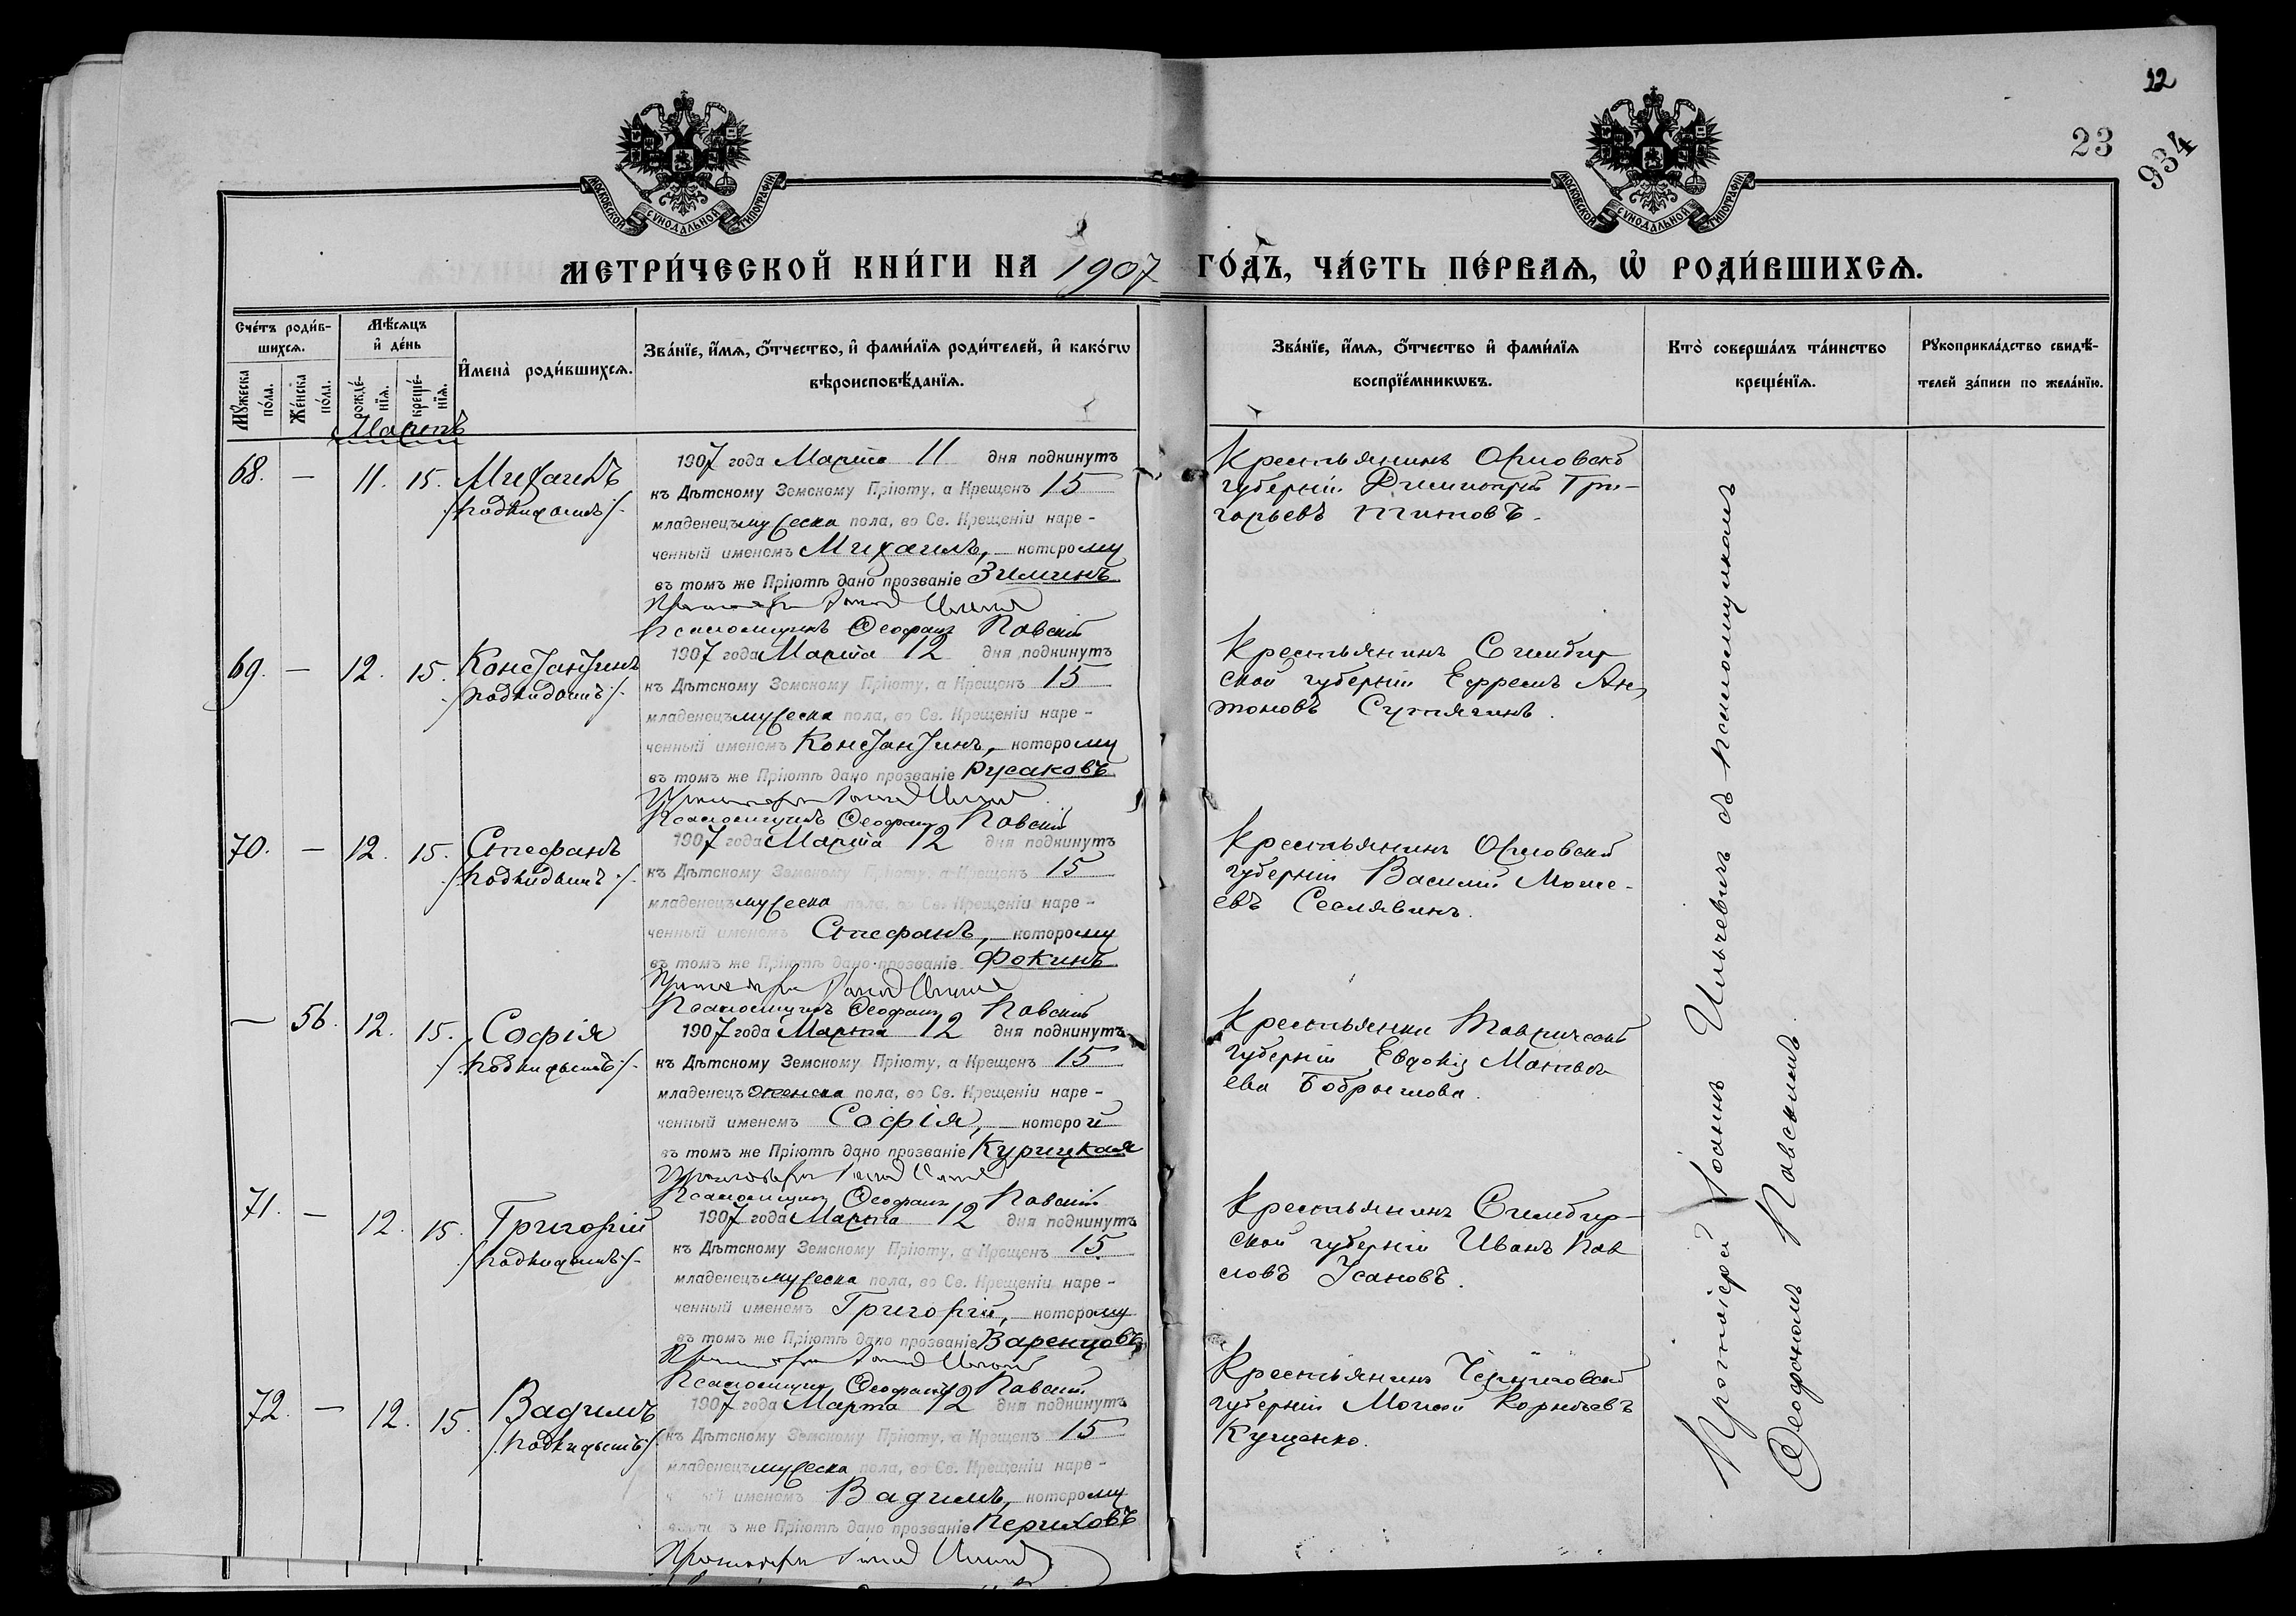 22
23
934
МОСКОВСКОЙ СѴНОДАЛЬНОЙ ТИПОГРАФІИ
МОСКОВСКОЙ СѴНОДАЛЬНОЙ ТИПОГРАФІИ
МЕТРИ́ЧЕСКОЙ КНИ́ГИ НА 1907 ГО́ДЪ, ЧА́СТЬ ПЕ́РВАѦ, Ѡ҆ РОДИ́ВШИХСѦ.
Сче́тъ роди́в-
шихсѧ.
Мꙋ́жеска по́ла.
Же́нска по́ла.
Мѣ́сѧцъ
и҆ де́нь
рожде́-
нїѧ.
креще́-
нїѧ.
И҆мена̀ роди́вшихсѧ.
Зва́нїе, и҆́мѧ, ѻ҆́тчество, и҆ фами́лїѧ роди́телей, и҆ како́гѡ
вѣроисповѣ́данїѧ.
Зва́нїе, и҆́мѧ, ѻ҆́тчество и҆ фами́лїѧ
воспрїе́мникѡвъ.
Кто̀ соверша́лъ та́инство
креще́нїѧ.
Рꙋкоприкла́дство свидѣ́-
телей за́писи по жела́нїю.
Мартъ
68. — 11. 15. Михаилъ
/подкидышъ/.
1907 года Марта 11 дня подкинутъ
къ Дѣтскому Земскому Пріюту, а Крещенъ 15
младенецъ мужеска пола, во Св. Крещеніи наре-
ченный именемъ Михаилъ, которому
въ томъ же Пріютѣ дано прозваніе Зиминъ
Псаломщикъ Ѳеофанъ Павскій
Крестьянинъ Орловской
губерніи Димитрій Гри-
горьевъ Титовъ.
69. — 12. 15. Константинъ
/подкидышъ/.
1907 года Марта 12 дня подкинутъ
къ Дѣтскому Земскому Пріюту, а Крещенъ 15
младенецъ мужеска пола, во Св. Крещеніи наре-
ченный именемъ Константинъ, которому
въ томъ же Пріютѣ дано прозваніе Русаковъ
Псаломщикъ Ѳеофанъ Павскій
Крестьянинъ Симбир
ской губерніи Ефремъ Ан
тоновъ Сутягинъ.
70. — 12. 15. Стефанъ
/подкидышъ/.
1907 года Марта 12 дня подкинутъ
къ Дѣтскому Земскому Пріюту, а Крещенъ 15
младенецъ мужеска пола, во Св. Крещеніи наре-
ченный именемъ Стефанъ, которому
въ томъ же Пріютѣ дано прозваніе Фокинъ
Псаломщикъ Ѳеофанъ Павскій
Крестьянинъ Орловской
губерніи Василій
евъ
— 56. 12. 15. Софія
/подкидышъ/.
1907 года Марта 12 дня подкинутъ
къ Дѣтскому Земскому Пріюту, а Крещенъ 15
младенецъ женска пола, во Св. Крещеніи наре-
ченный именемъ Софія, которой
въ томъ же Пріютѣ дано прозваніе Курицкая
Псаломщикъ Ѳеофанъ Павскій
Крестьянка Таврической
губерніи Евдокія Матвѣ
ева
71. — 12. 15. Григорій
/подкидышъ/.
1907 года Марта 12 дня подкинутъ
къ Дѣтскому Земскому Пріюту, а Крещенъ 15
младенецъ мужеска пола, во Св. Крещеніи наре-
ченный именемъ Григорій, которому
въ томъ же Пріютѣ дано прозваніе Варенцовъ
Псаломщикъ Ѳеофанъ Павскій
Крестьянинъ Симбир-
ской губерніи Иванъ Пав
ловъ Усановъ.
72. — 12. 15. Вадимъ
/подкидышъ/.
1907 года Марта 12 дня подкинутъ
къ Дѣтскому Земскому Пріюту, а Крещенъ 15
младенецъ мужеска пола, во Св. Крещеніи наре-
именемъ Вадимъ, которому
же Пріютѣ дано прозваніе Периховъ
Крестьянинъ Черниговской
губерніи Моисей Корнѣевъ
Кущенко.
Протоіерей Іоаннъ Ильичевичъ съ псаломщикомъ
Ѳеофаномъ Павскимъ.